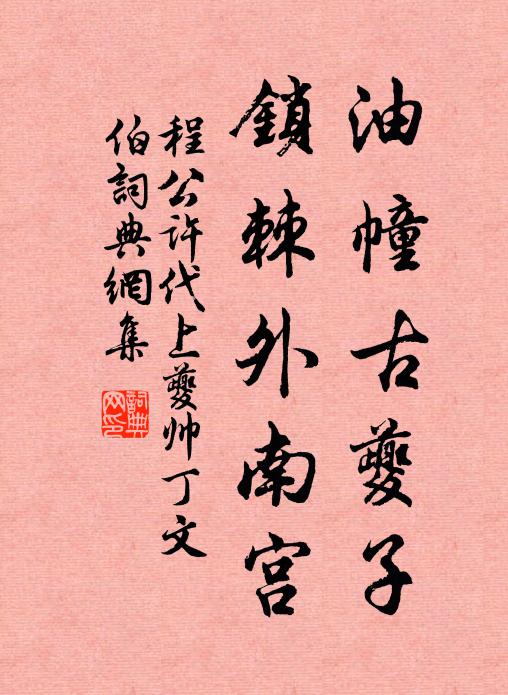 油幢古夔子
鎖棘外南宫
程公许代上夔帅丁文
伯詞典網集
詞典网印